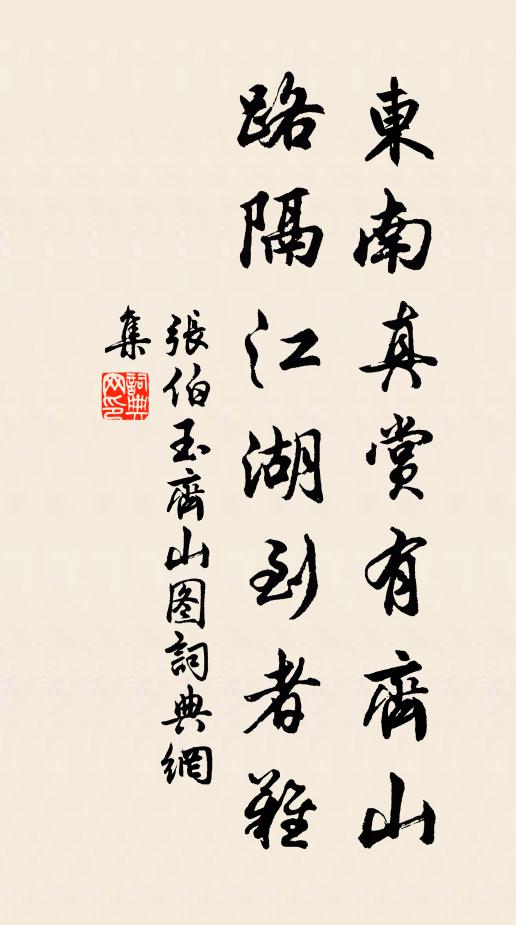 東南真賞有齊山
路隔江湖到者難
張伯玉齊山图詞典網
集
詞典
网印